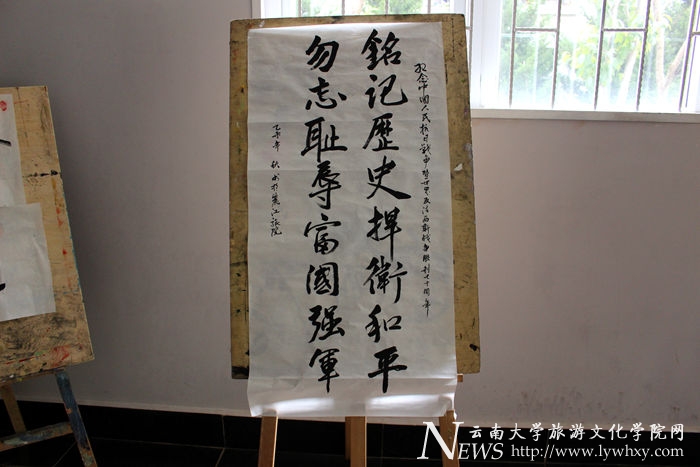 纪念中国人民抗日战争暨世界反法西斯战争胜利七十周年
銘记歷史捍衛和平
勿忘耻辱富國强軍
乙未年 秋书於麗江旅院
NEWS 云南大学旅游文化学院网
http://www.lywhxy.com